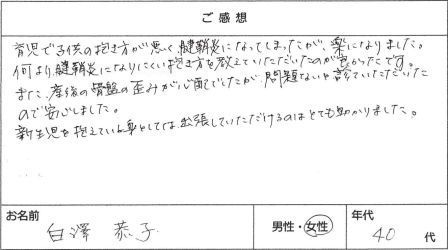 ご感想
育児で子供の抱き方が悪く、腱鞘炎になってしまったが、楽になりました。
何より、腱鞘炎になりにくい抱き方を教えていただいたのが良かったです。
また、産後の骨盤の歪みが心配でしたが、問題ないと言っていただいた
ので安心しました。
新生児を抱えている身としては、出張していただけるのはとても助かりました。
お名前
白澤 恭子
男性・女性
年代
40代